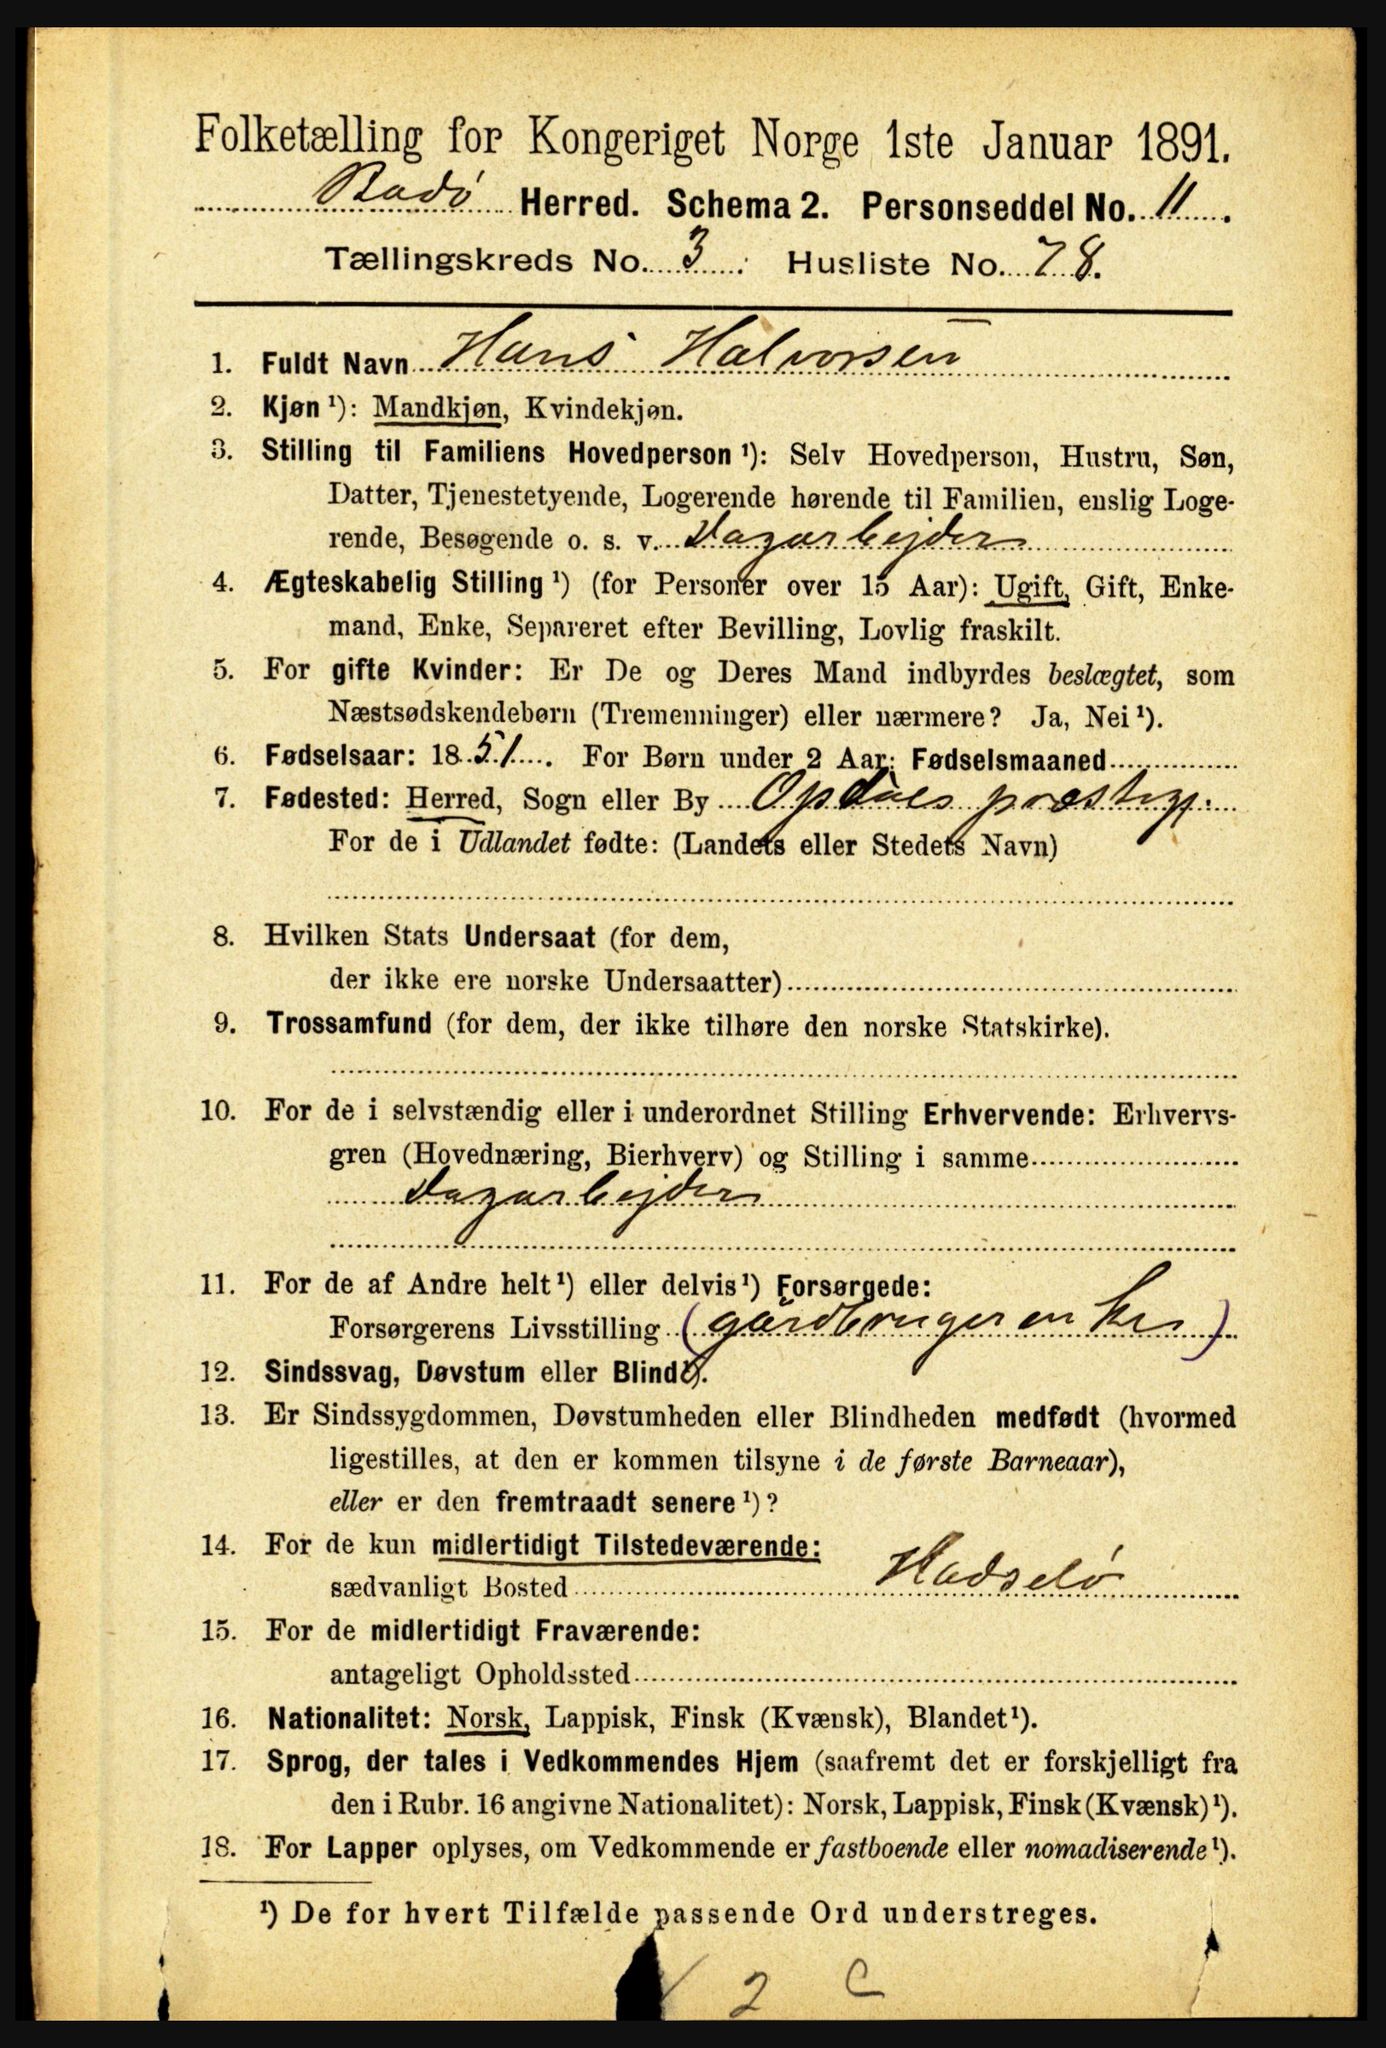 Folketælling for Kongeriget Norge 1ste Januar 1891.
Bodø Herred. Schema 2. Personseddel No. 11.
Tællingskreds No. 3. Husliste No. 78.
1. Fuldt Navn Hans Halvorsen
2. Kjøn ¹): Mandkjøn, Kvindekjøn.
3. Stilling til Familiens Hovedperson ¹): Selv Hovedperson, Hustru, Søn,
Datter, Tjenestetyende, Logerende hørende til Familien, enslig Loge-
rende, Besøgende o. s. v. Dagarbejder
4. Ægteskabelig Stilling ¹) (for Personer over 15 Aar): Ugift, Gift, Enke-
mand, Enke, Separeret efter Bevilling, Lovlig fraskilt.
5. For gifte Kvinder: Er De og Deres Mand indbyrdes beslægtet, som
Næstsødskendebørn (Tremenninger) eller nærmere? Ja, Nei ¹).
6. Fødselsaar: 1851. For Børn under 2 Aar: Fødselsmaaned
7. Fødested: Herred, Sogn eller By Opdals præstegj.
For de i Udlandet fødte: (Landets eller Stedets Navn)
8. Hvilken Stats Undersaat (for dem,
der ikke ere norske Undersaatter)
9. Trossamfund (for dem, der ikke tilhøre den norske Statskirke).
10. For de i selvstændig eller i underordnet Stilling Erhvervende: Erhvervs-
gren (Hovednæring, Bierhverv) og Stilling i samme
Dagarbejder
11. For de af Andre helt ¹) eller delvis ¹) Forsørgede:
Forsørgerens Livsstilling (gårdbrugerenke)
12. Sindssvag, Døvstum eller Blind ¹).
13. Er Sindssygdommen, Døvstumheden eller Blindheden medfødt (hvormed
ligestilles, at den er kommen tilsyne i de første Barneaar),
eller er den fremtraadt senere ¹)?
14. For de kun midlertidigt Tilstedeværende:
sædvanligt Bosted Hadselø
15. For de midlertidigt Fraværende:
antageligt Opholdssted
16. Nationalitet: Norsk, Lappisk, Finsk (Kvænsk), Blandet ¹).
17. Sprog, der tales i Vedkommendes Hjem (saafremt det er forskjelligt fra
den i Rubr. 16 angivne Nationalitet): Norsk, Lappisk, Finsk (Kvænsk) ¹).
18. For Lapper oplyses, om Vedkommende er fastboende eller nomadiserende ¹).
¹) De for hvert Tilfælde passende Ord understreges.
2 C